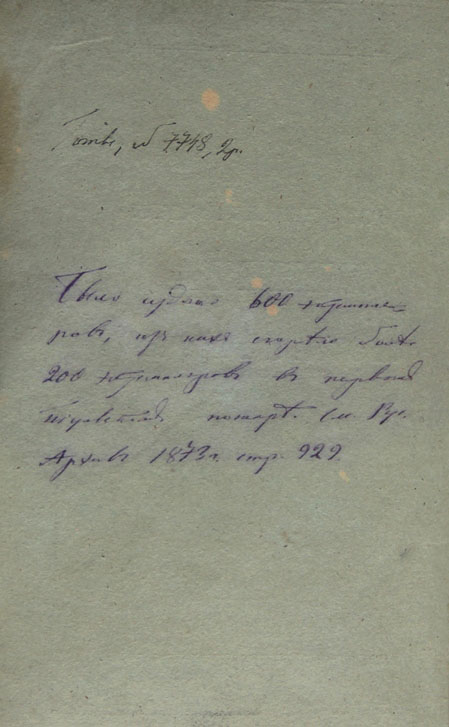 Готье, № 7748, 2р.
Было издано 600 экземпля-
ровъ, изъ нихъ сгорѣло болѣе
200 экземпляровъ въ первомъ
пожарѣ. См. Рус.
Архивъ 1873 г. стр. 929